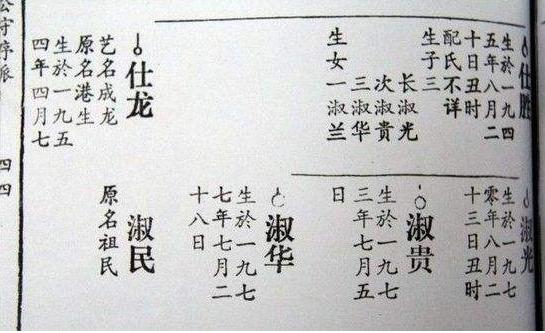 仕胜
生於一九四
五年八月二
十日丑时
配氏不详
生子三
长淑光
次淑贵
三淑华
生女一淑兰
仕龙
艺名成龙
原名港生
生於一九五
四年四月七
淑光
生於一九七
零年八月二
十三日丑时
淑贵
生於一九七
三年七月五
日
淑华
生於一九七
七年七月二
十八日
淑民
原名祖民
四四